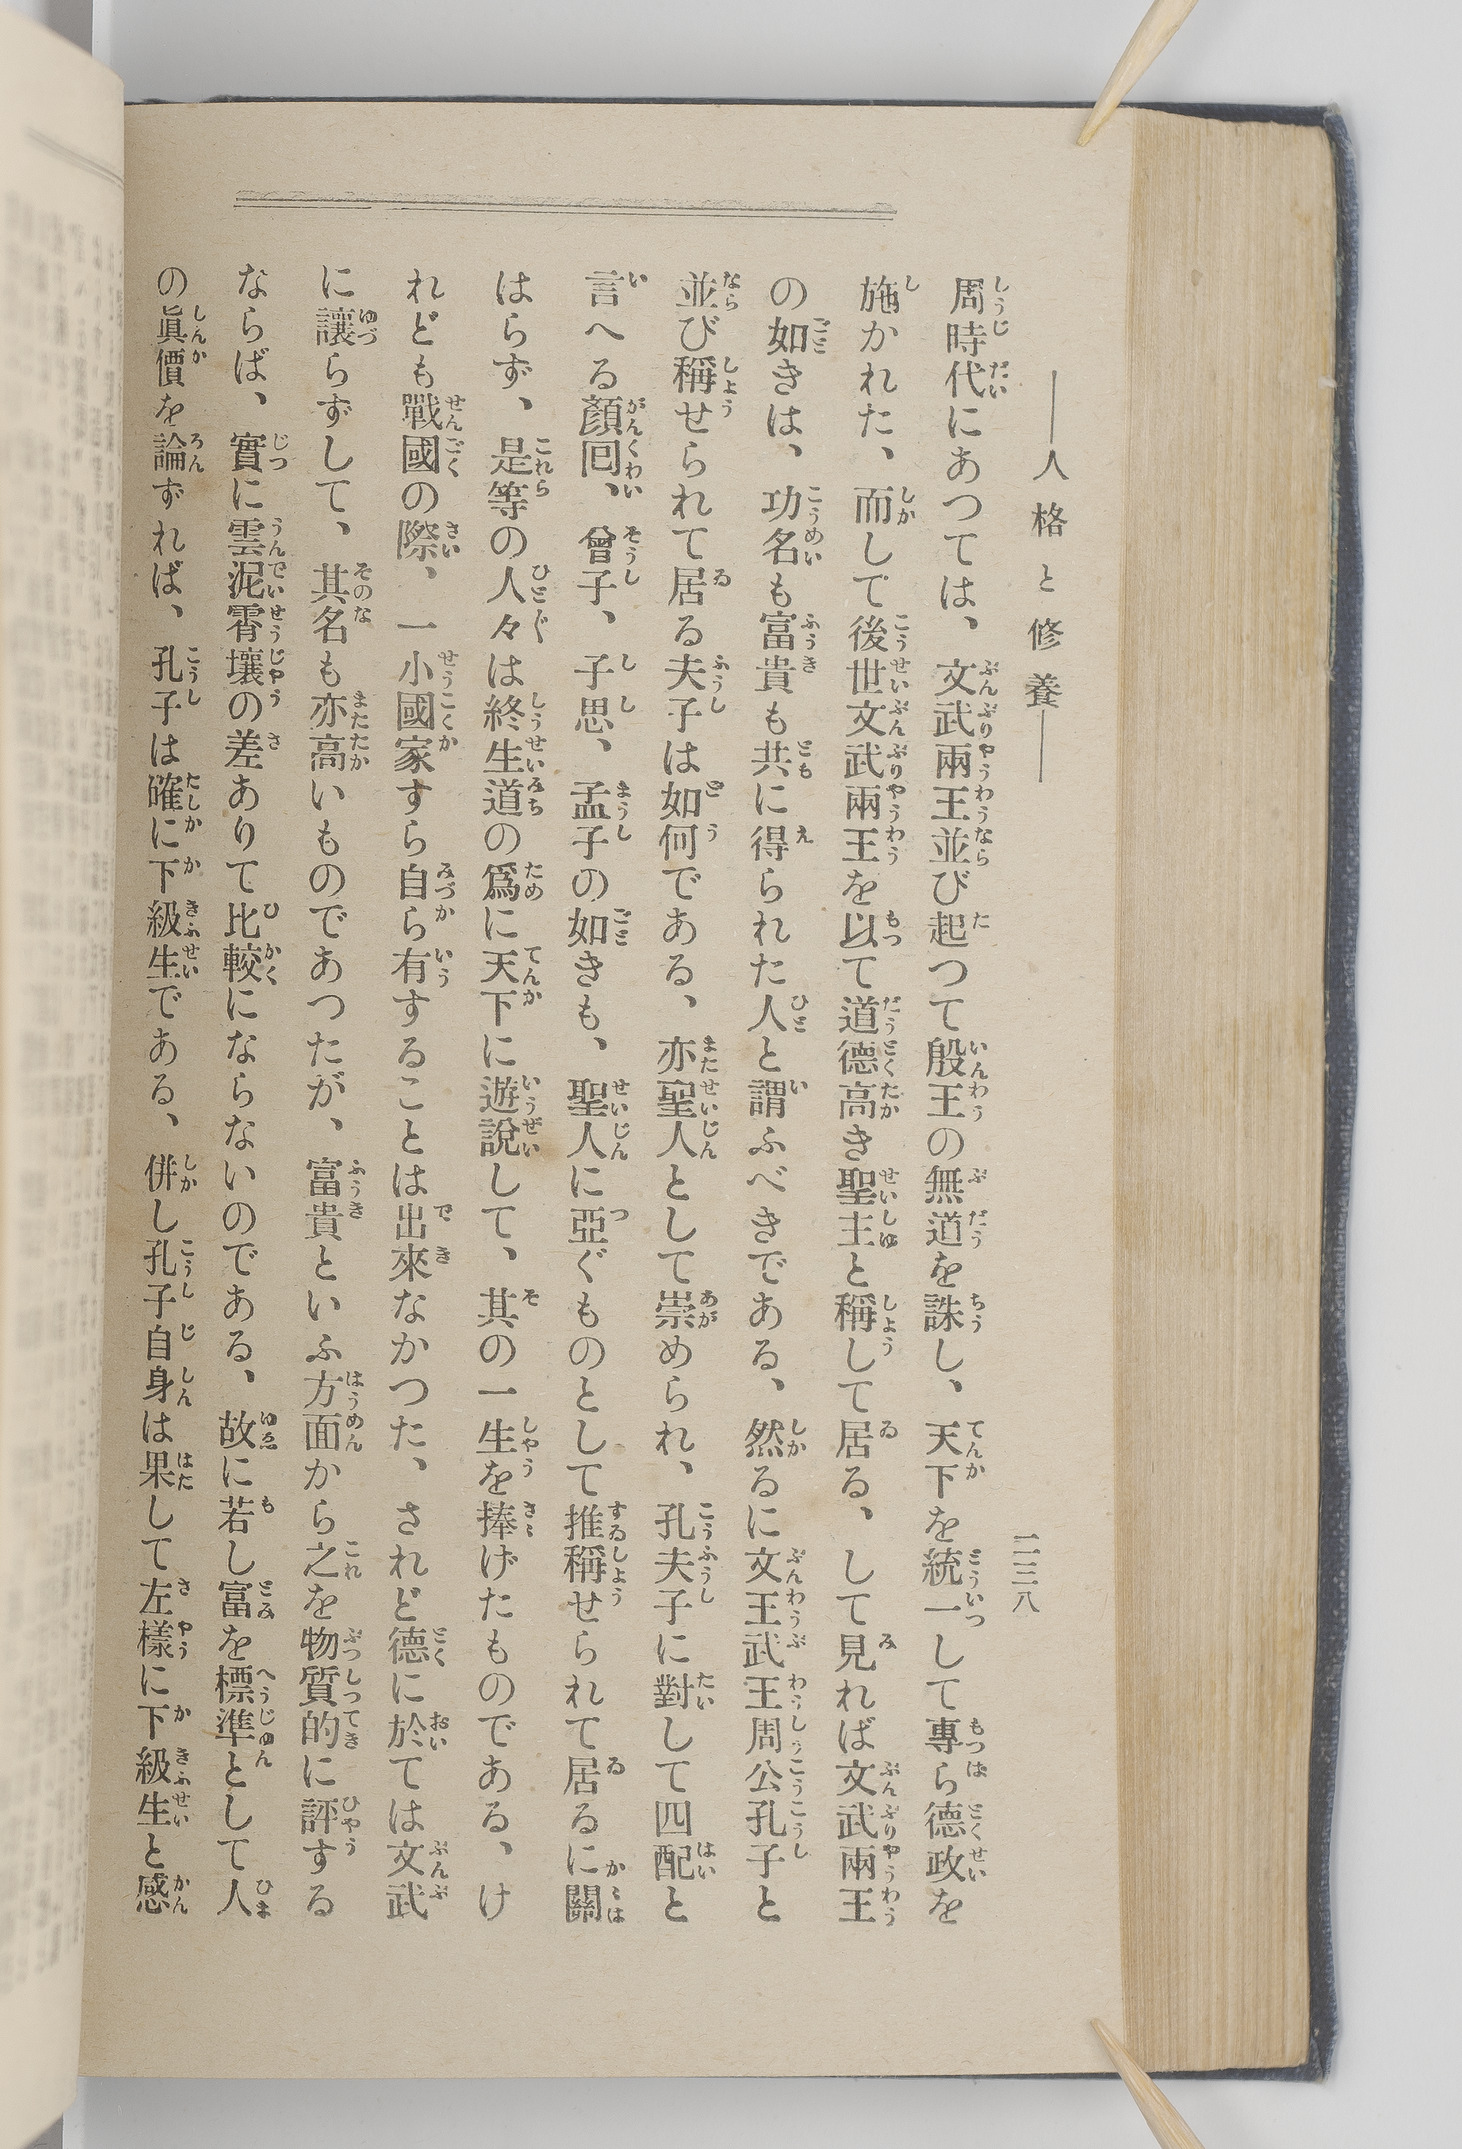 ――人格と修養――
二三八
周時代にあつては、文武兩王並び起つて殷王の無道を誅し、天下を統一して專ら德政を
施かれた、而して後世文武兩王を以て道德高き聖主と稱して居る、して見れば文武兩王
の如きは、功名も富貴も共に得られた人と謂ふべきである、然るに文王武王周公孔子と
並び稱せられて居る夫子は如何である、亦聖人として崇められ、孔夫子に對して四配と
言へる顏囘、曾子、子思、孟子の如きも、聖人に亞ぐものとして推稱せられて居るに關
はらず、是等の人々は終生道の爲に天下に遊說して、其の一生を捧げたものである、け
れども戰國の際、一小國家すら自ら有することは出來なかつた、されど德に於ては文武
に讓らずして、其名も亦高いものであつたが、富貴といふ方面から之を物質的に評する
ならば、實に雲泥霄壤の差ありて比較にならないのである、故に若し富を標準として人
の眞價を論ずれば、孔子は確に下級生である、併し孔子自身は果して左樣に下級生と感